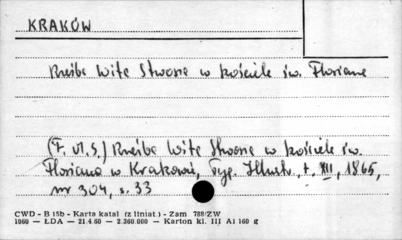 KRAKÓW
Rzeźba Wita Stwosza w kościele św. Floriana
(F. M. S.) Rzeźba Wita Stwosza w kościele św.
Floriana w Krakowie, Tyg. Illustr., t. XII, 1865,
nr 304, s. 33
CWD - B 15b - Karta katal (z liniat.) - Zam 788/ZW
1060 — LDA — 21.4.60 — 2.360.000 — Karton kl. III A1 160 g